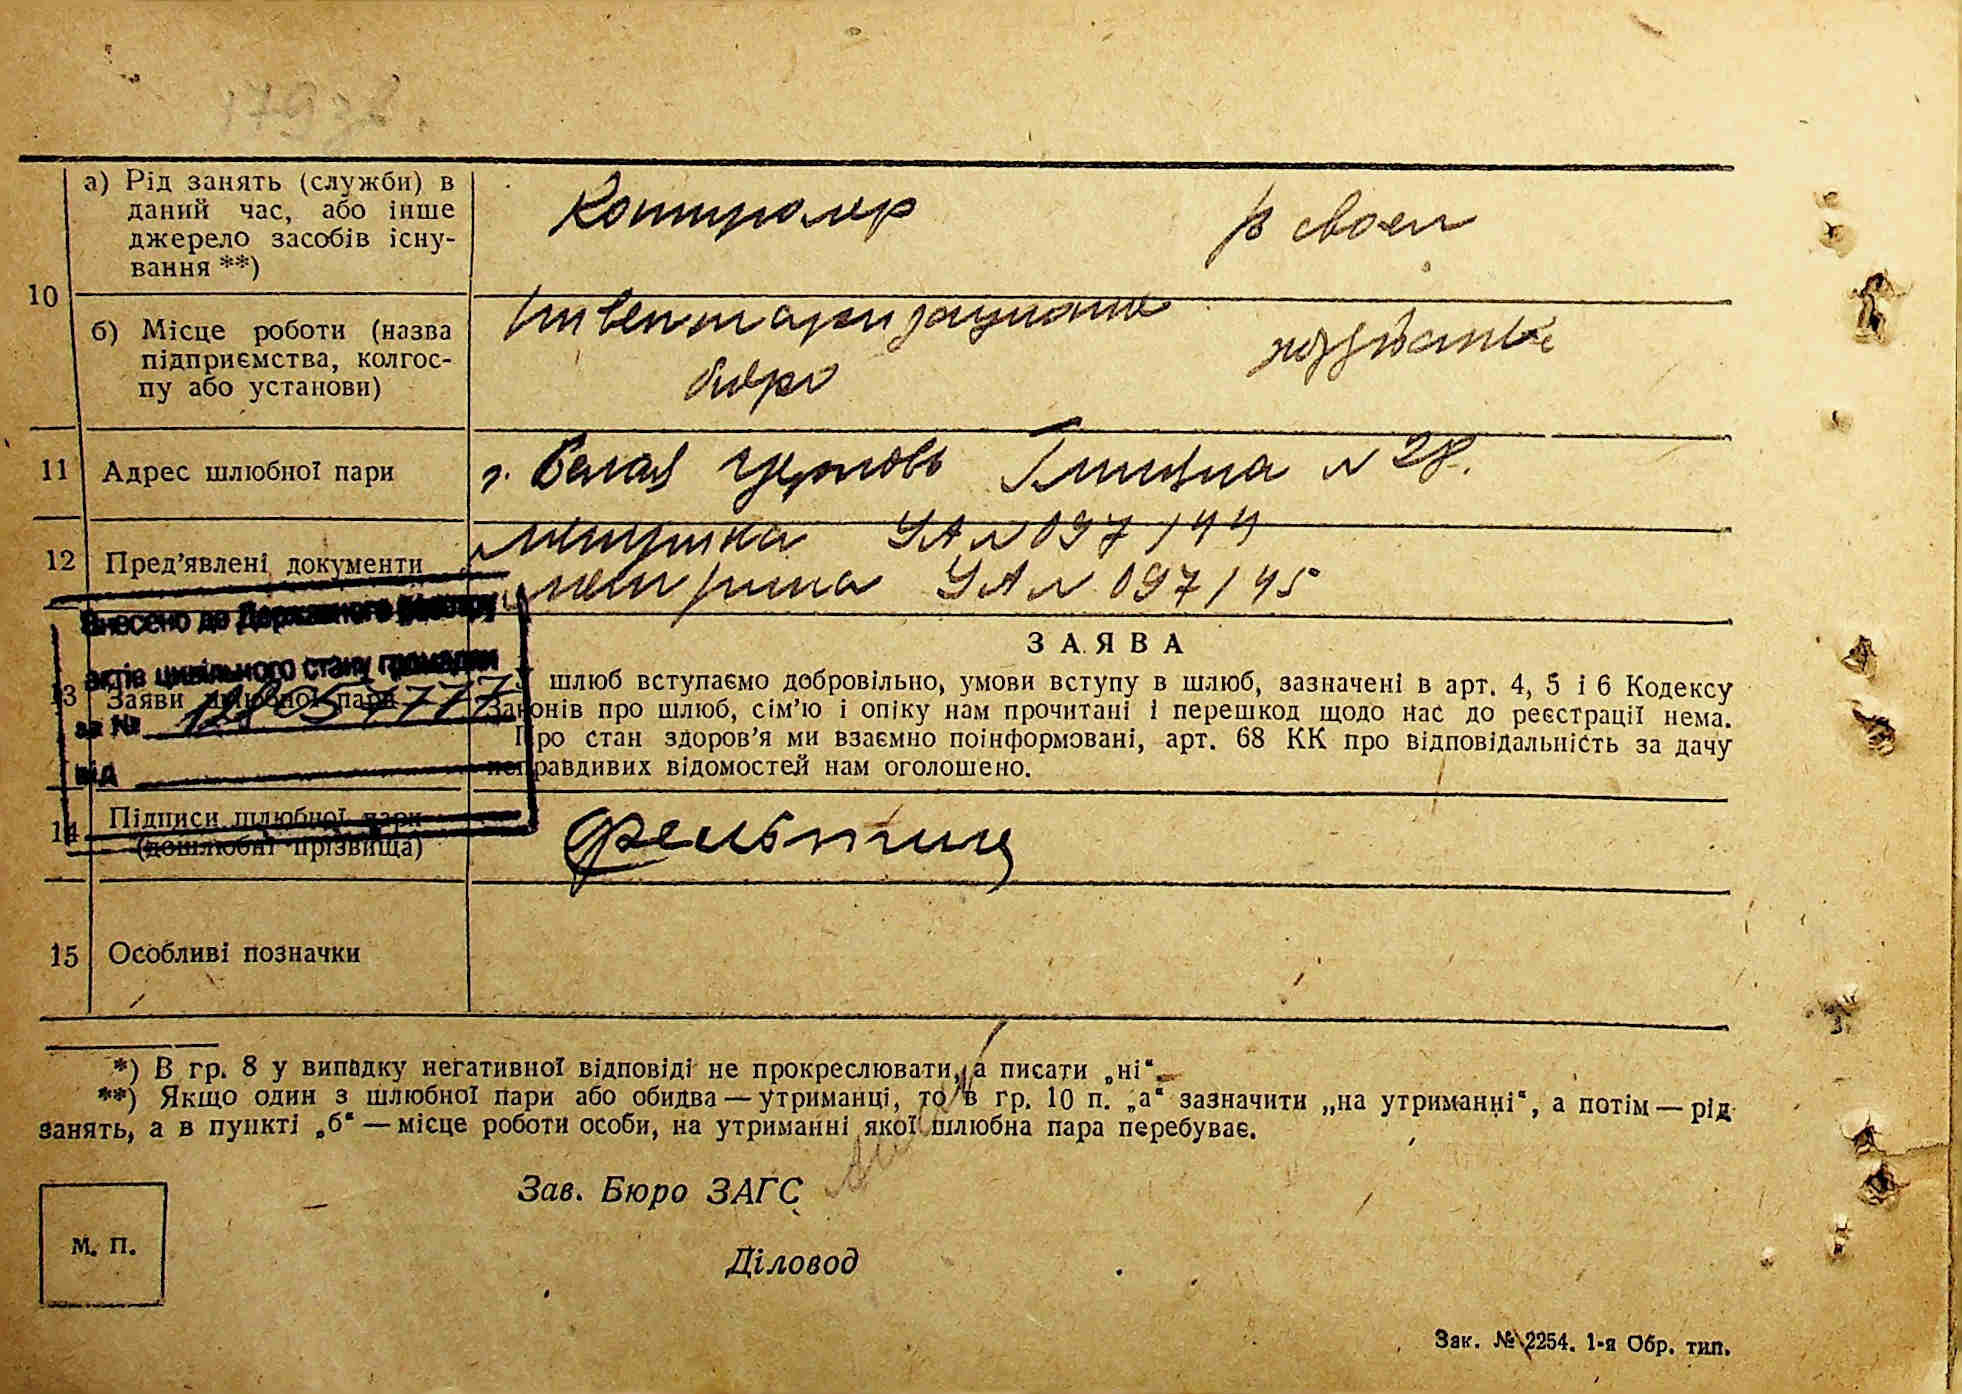 а) Рід занять (служби) в
даний час, або інше
джерело засобів існу-
вання **)
Контролер
в своем
10
б) Місце роботи (назва
підприємства, колгос-
пу або установи)
бюро
11 Адрес шлюбної пари
г. Белая церковь № 28.
12 Пред’явлені документи
метрика УА № 097144
метрика УА № 097145
Внесено до Державного реєстру
актів цивільного стану громадян
за №
від
13 Заяви шлюбної пари
ЗАЯВА
У шлюб вступаємо добровільно, умови вступу в шлюб, зазначені в арт. 4, 5 і 6 Кодексу
Законів про шлюб, сім’ю і опіку нам прочитані і перешкод щодо нас до реєстрації нема.
Про стан здоров’я ми взаємно поінформовані, арт. 68 КК про відповідальність за дачу
неправдивих відомостей нам оголошено.
14 Підписи шлюбної пари
(дошлюбні прізвища)
15 Особливі позначки
*) В гр. 8 у випадку негативної відповіді не прокреслювати, а писати „ні“.
**) Якщо один з шлюбної пари або обидва — утриманці, то в гр. 10 п. „а“ зазначити „на утриманні“, а потім — рід
занять, а в пункті „б“ — місце роботи особи, на утриманні якої шлюбна пара перебуває.
Зав. Бюро ЗАГС
М. П.
Діловод
Зак. № 2254. 1-я Обр. тип.